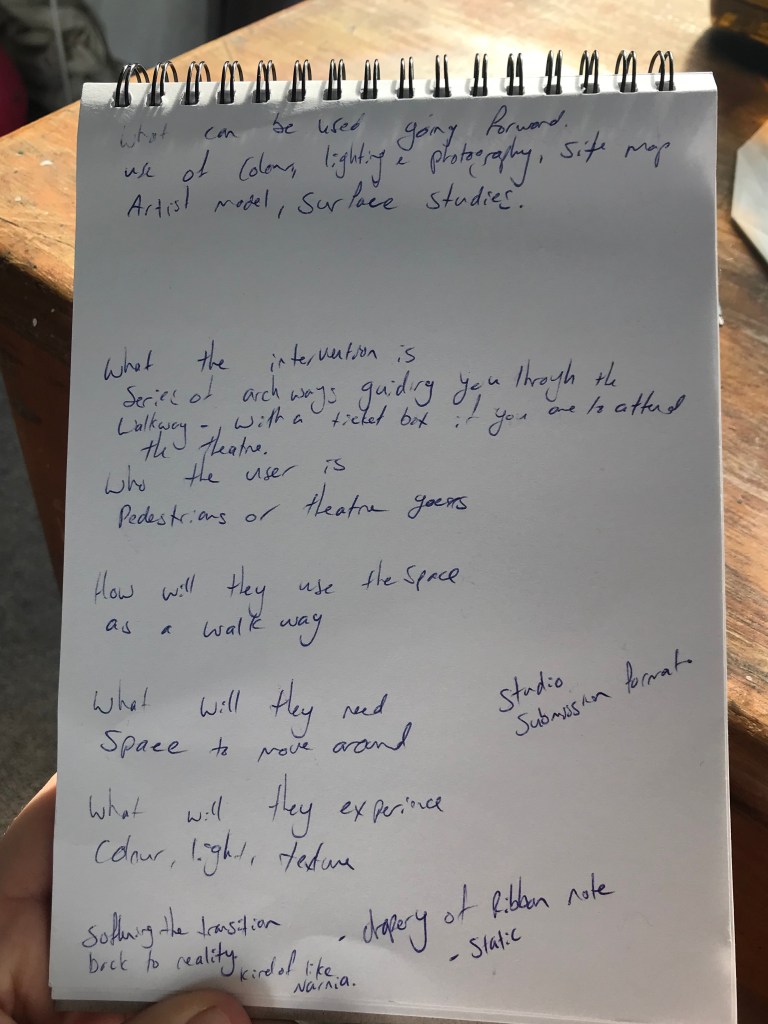 What can be used going forward.
use of Colour, lighting & photography, Site map
Artist model, Surface Studies.
What the intervention is
Series of archways guiding you through the
Walkway - with a ticket box if you are to attend
the theatre.
Who the user is
Pedestrians or theatre goers
How will they use the space
as a walkway
What will they need
Space to move around
Studio
Submission format
What will they experience
Colour, light, texture
Softening the transition
back to reality
kind of like
Narnia.
- drapery of Ribbon note
- Static